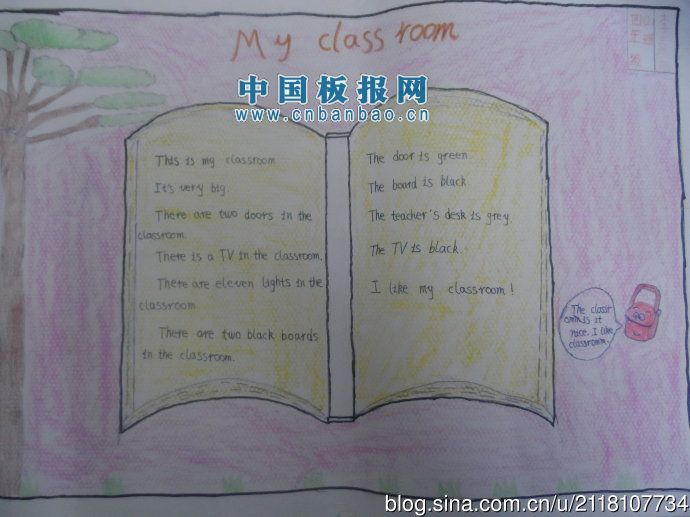 My classroom
中国板报网
www.cnbanbao.cn
This is my classroom
It's very big.
There are two doors in the
classroom.
There is a TV in the classroom.
There are eleven lights in the
classroom
There are two black boards
in the classroom.
The door is green.
The board is black.
The teacher's desk is grey.
The TV is black.
I like my classroom!
The classr
omis it
nice. I like
classromm.
blog.sina.com.cn/u/2118107734